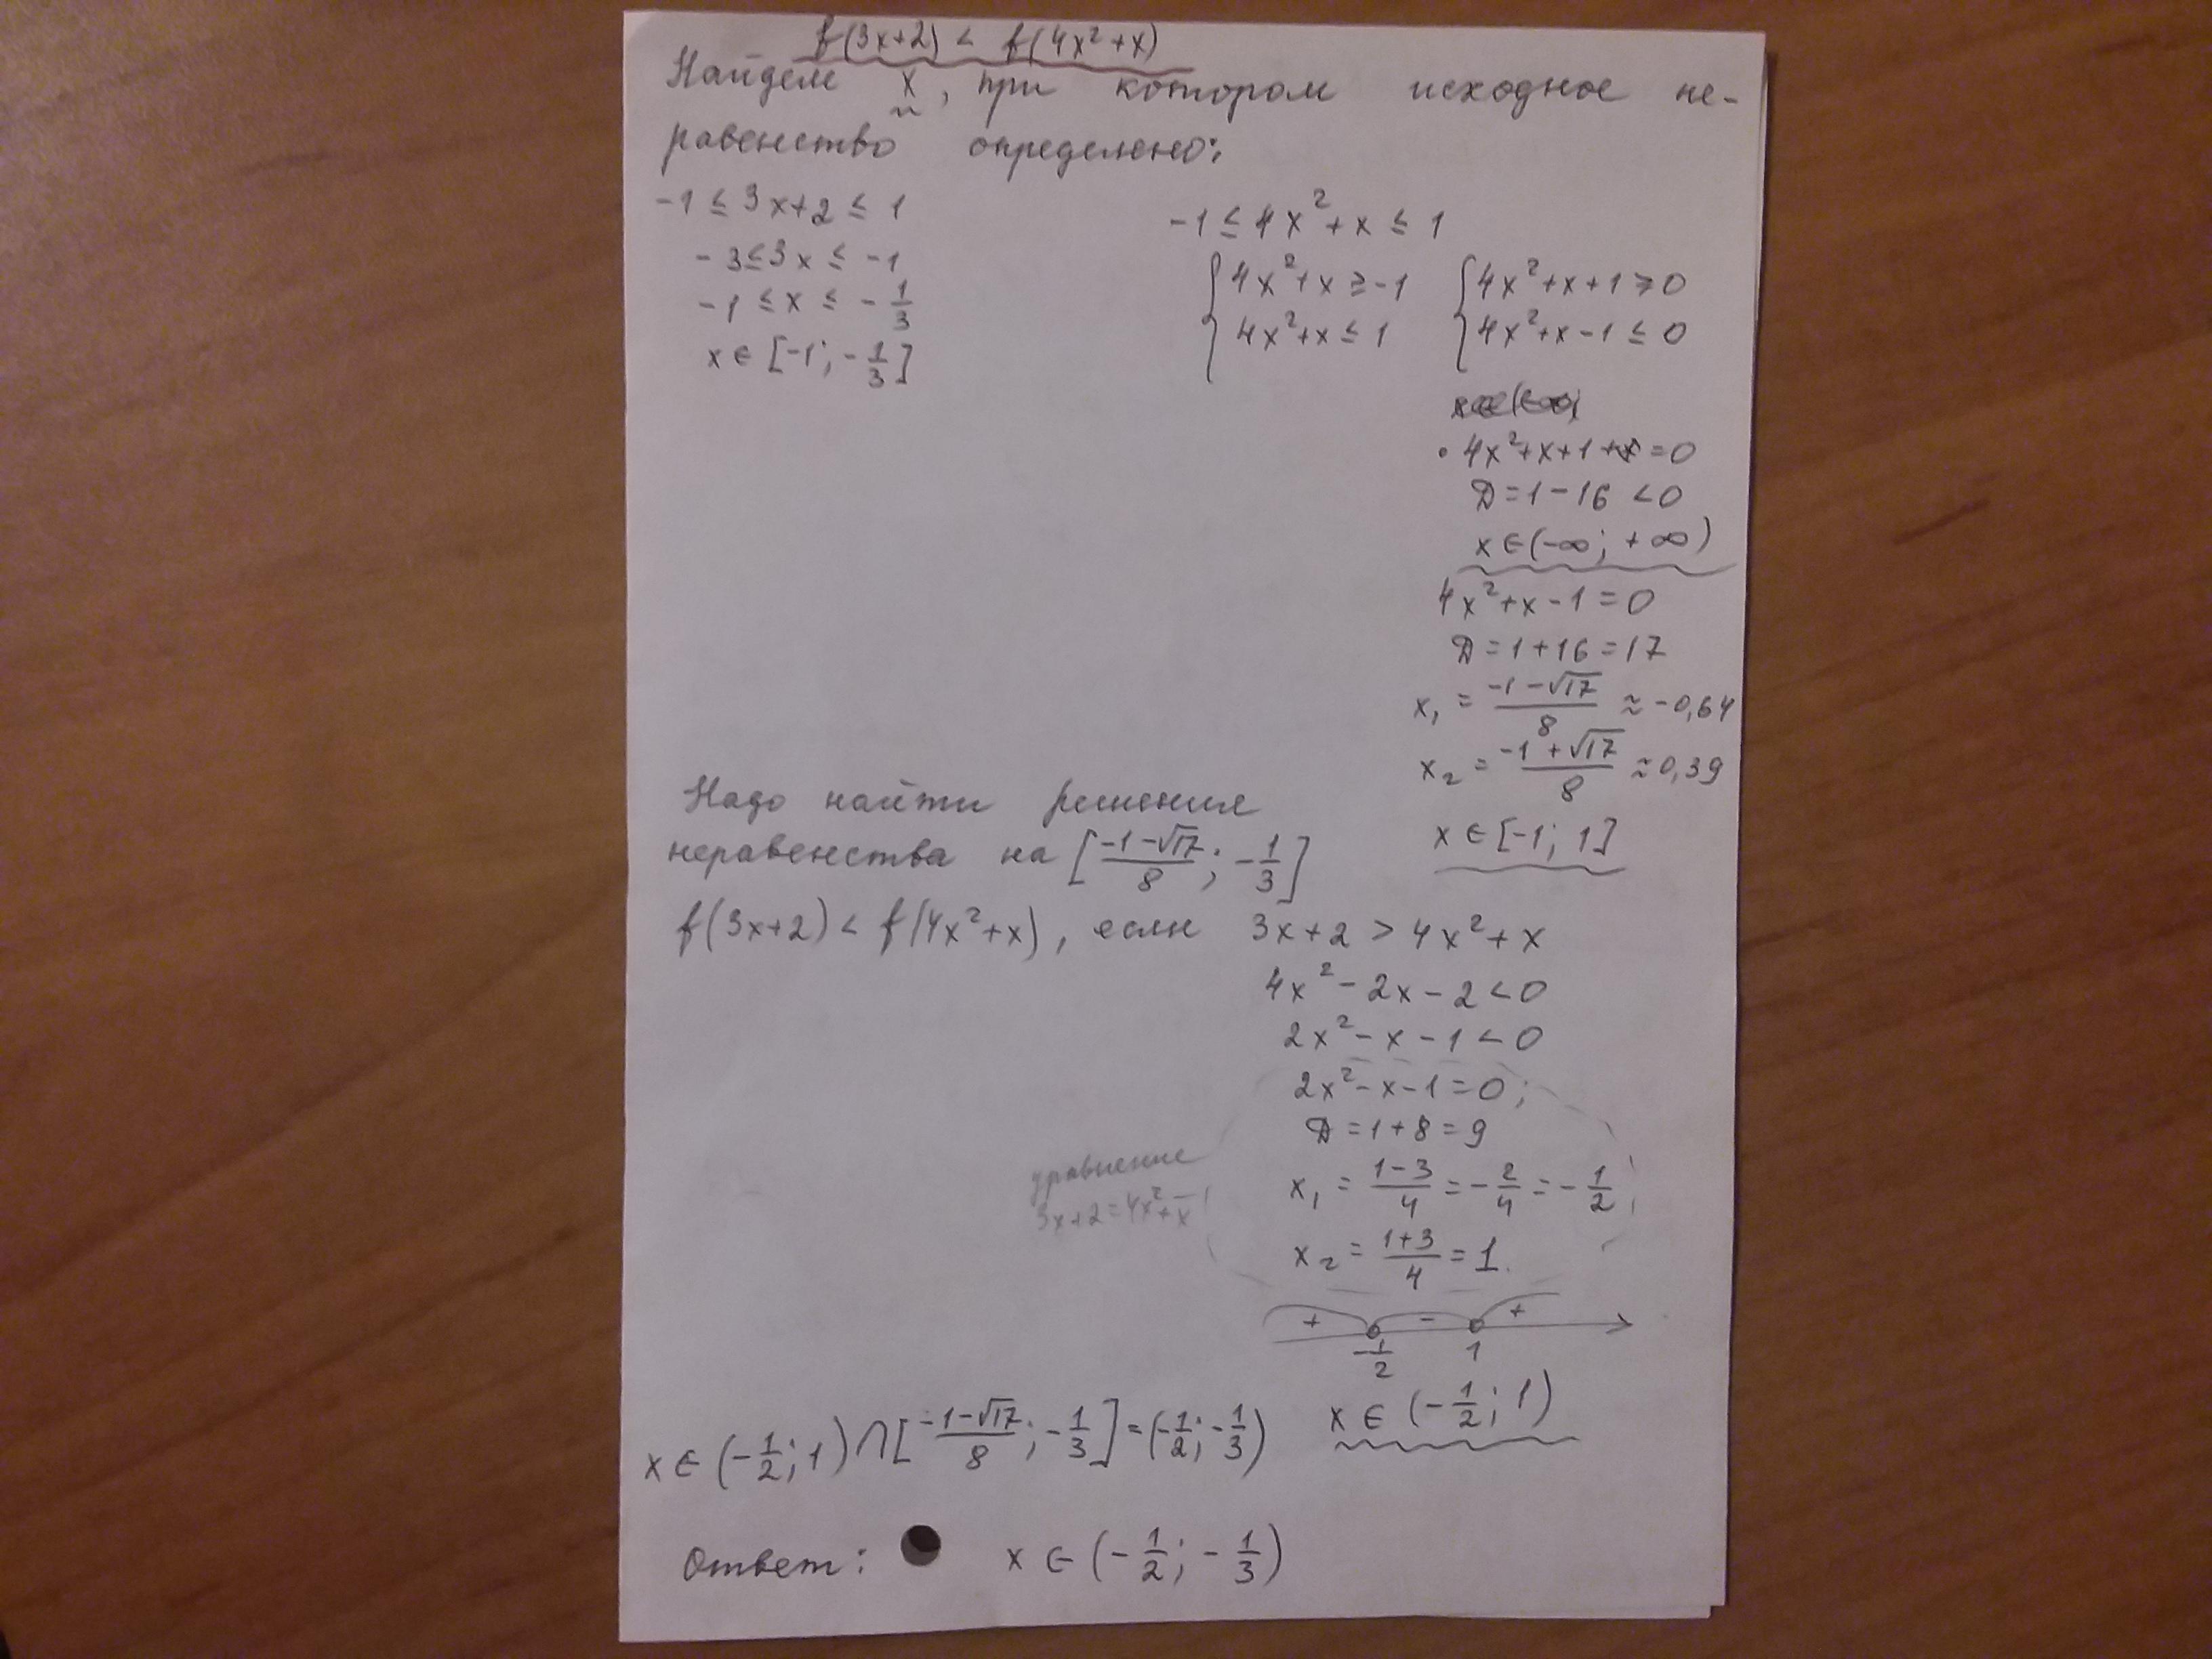 f(3x+2) < f(4x²+x)
Найдем x, при котором исходное не-
равенство определено:
-1 ≤ 3x+2 ≤ 1
-3 ≤ 3x ≤ -1
-1 ≤ x ≤ -1/3
x ∈ [-1; -1/3]
-1 ≤ 4x²+x ≤ 1
{4x²+x ≥ -1 {4x²+x+1 ≥ 0
{4x²+x ≤ 1 {4x²+x-1 ≤ 0
• 4x²+x+1 = 0
D = 1-16 < 0
x ∈ (-∞; +∞)
4x²+x-1 = 0
D = 1+16 = 17
x₁ = (-1-√17)/8 ≈ -0,64
x₂ = (-1+√17)/8 ≈ 0,39
x ∈ [-1; 1]
Надо найти решения
неравенства на [(-1-√17)/8; -1/3]
f(3x+2) < f(4x²+x), если 3x+2 > 4x²+x
4x²-2x-2 < 0
2x²-x-1 < 0
2x²-x-1 = 0;
D = 1+8 = 9
x₁ = (1-3)/4 = -2/4 = -1/2;
x₂ = (1+3)/4 = 1.
уравнение
3x+2 = 4x²+x
+ - +
-1/2 1
x ∈ (-1/2; 1)
x ∈ (-1/2; 1) ∩ [(-1-√17)/8; -1/3] = (-1/2; -1/3)
Ответ: x ∈ (-1/2; -1/3)